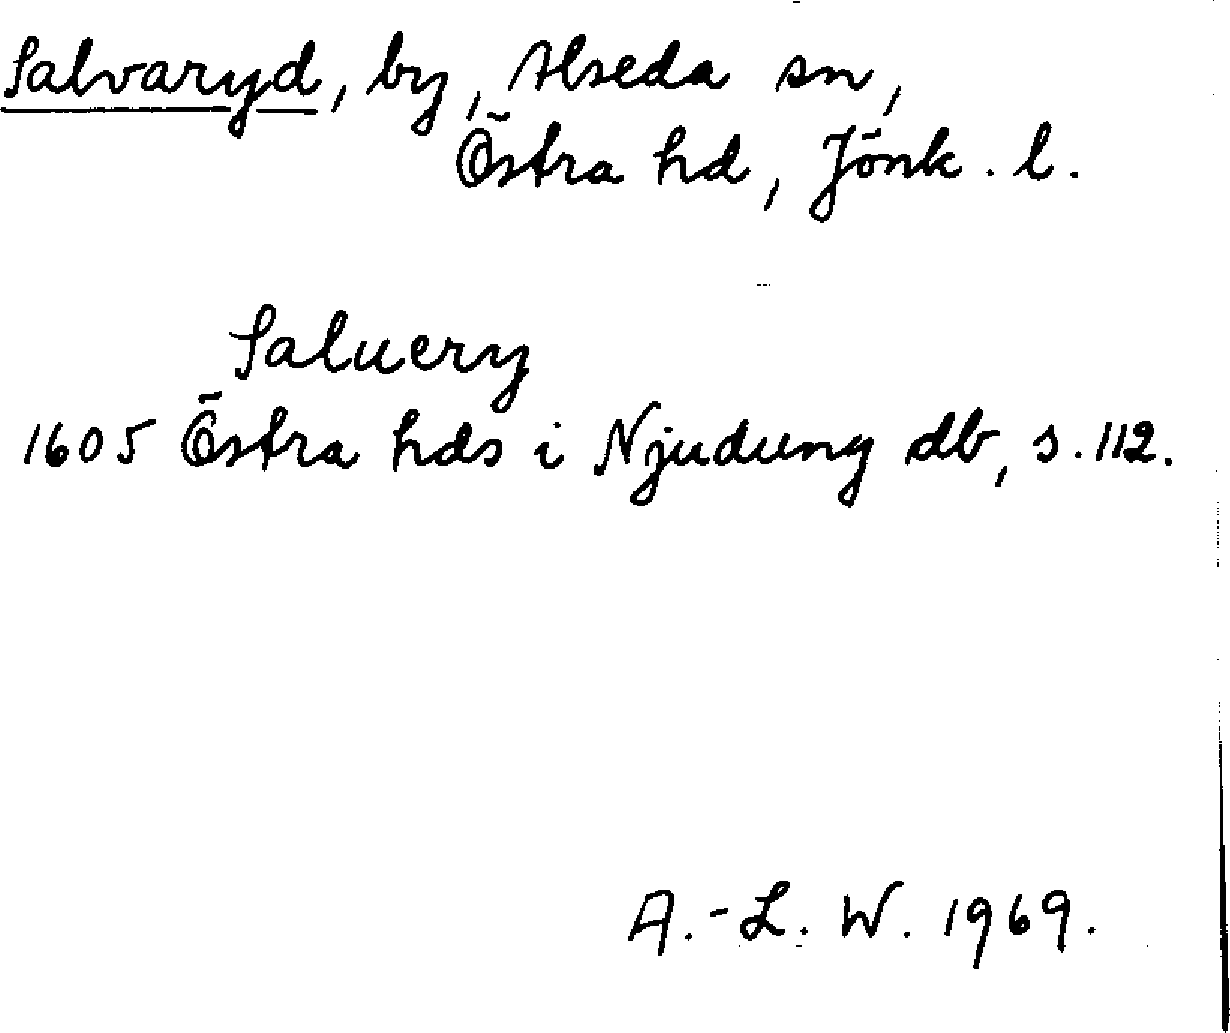 Salvaryd, by, Alseda sn,
Östra hd, Jönk. l.
Saluery
1605 Östra hds i Njudung db, s. 112.
A.-L. W. 1969.